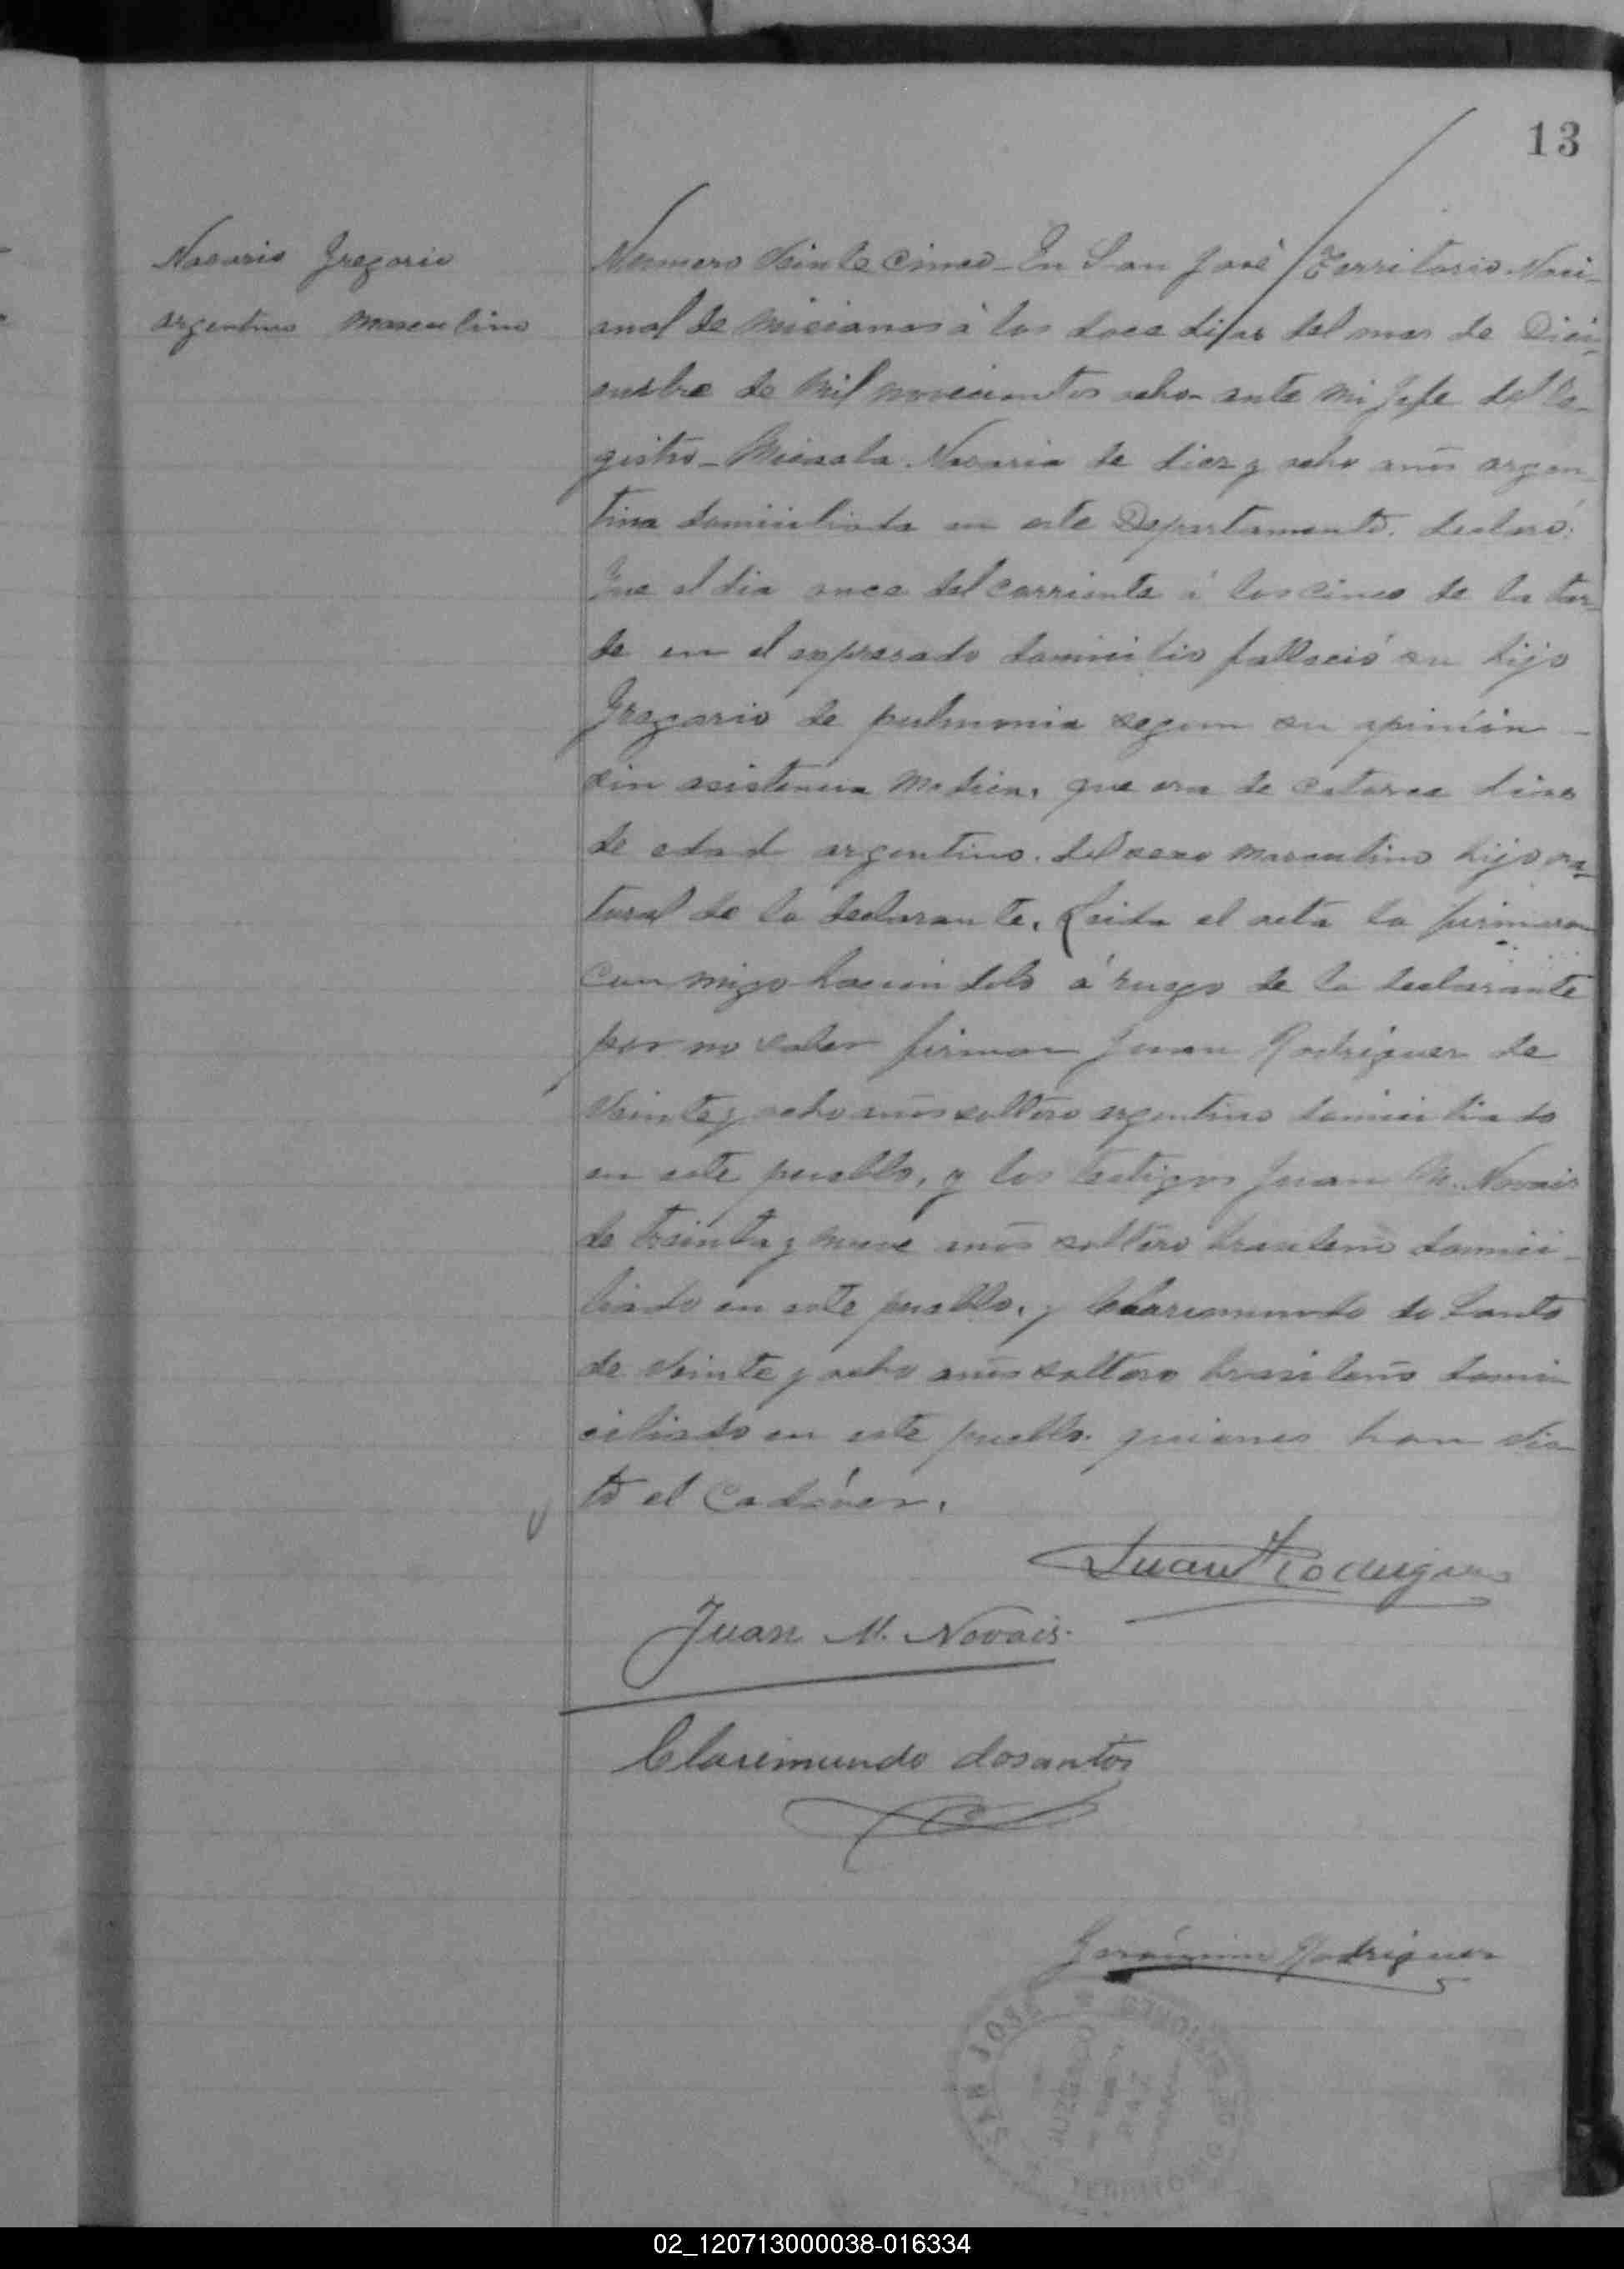 13
Nasario Gregorio
argentino masculino
Numero Veinte cinco_ En San José Territorio Naci-
onal de Misiones á los doce dias del mes de Dici-
embre de mil novecientos ocho_ ante mi Jefe del Re-
gistro_ Micaela Nasaria de diez y ocho anõs argen-
tina domiciliada en este Departamento. declaró:
Que el dia once del corriente á las cinco de la tar-
de en el expresado domicilio falleció su hijo
Gregorio de pulmonia segun su opinión _
sin asistencia Medica, que era de catorce dias
de edad argentino. del sexo masculino hijo na-
tural de la declarante. Leida el acta la firmaron
con migo haciendolo á ruego de la declarante
por no saber firmar Juan Rodriguez de
Veinte y ocho anõs soltero argentino domiciliado
en este pueblo, y los testigos Juan M. Novais
de treinta y nueve anõs soltero brasilenõ domici-
liado en este pueblo, y Claremundo do Santo
de Veinte y ocho anõs soltero brasilenõ domi-
ciliado en este pueblo. quienes han vis-
to el Cadáver.
Juan Rodrigues
Juan M. Novais.
Claremundo dosantos
Gerónimo Rodriguez
SAN JOSE
JUZGADO
DE
PAZ
TERRITORIO DE MISIONES
02_120713000038-016334